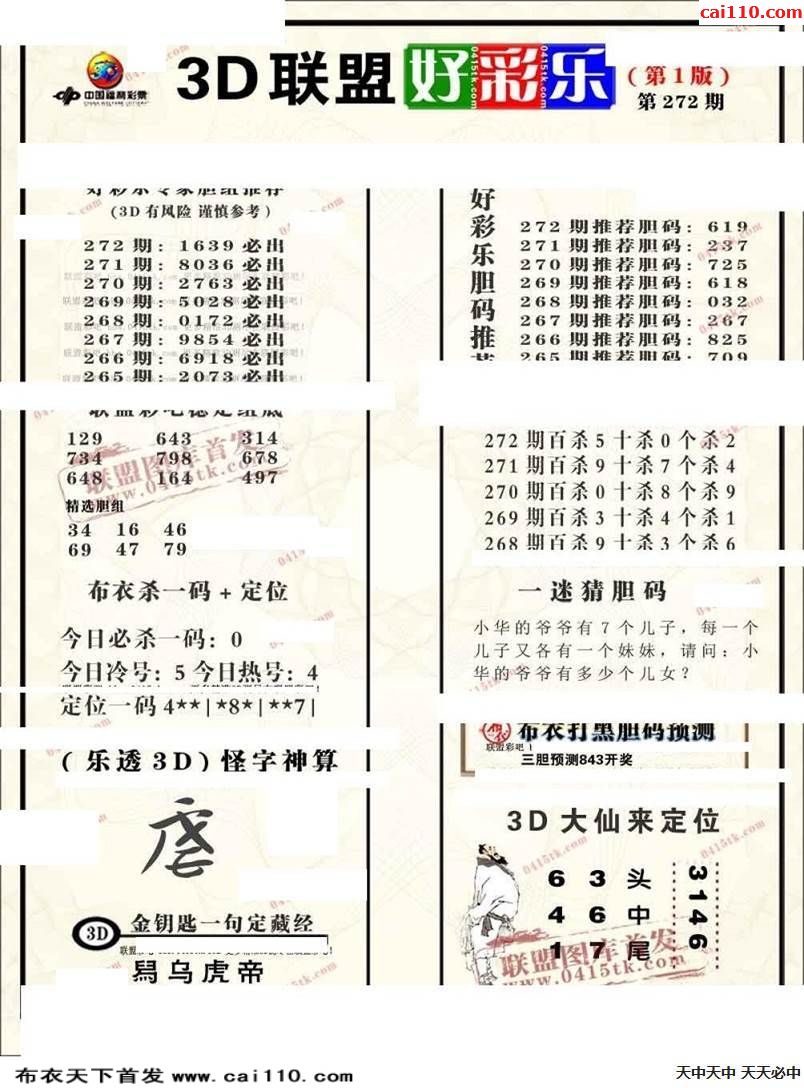 cai110.com
3D联盟好彩乐
(第1版)
第272期
中国福利彩票
CHINA WELFARE LOTTERY
好彩乐专家胆组推荐
(3D有风险 谨慎参考)
272期：1639必出
271期：8036必出
270期：2763必出
269期：5028必出
268期：0172必出
267期：9854必出
266期：6918必出
265期：2073必出
好彩乐胆码推荐
272期推荐胆码：619
271期推荐胆码：237
270期推荐胆码：725
269期推荐胆码：618
268期推荐胆码：032
267期推荐胆码：267
266期推荐胆码：825
265期推荐胆码：709
联盟彩吧稳定组底
129 643 314
734 798 678
648 164 497
联盟图库首发
www.0415tk.com
精选胆组
34 16 46
69 47 79
272期百杀5十杀0个杀2
271期百杀9十杀7个杀4
270期百杀0十杀8个杀9
269期百杀3十杀4个杀1
268期百杀9十杀3个杀6
布衣杀一码+定位
今日必杀一码：0
今日冷号：5 今日热号：4
定位一码4**|*8*|**7|
一迷猜胆码
小华的爷爷有7个儿子，每一个
儿子又各有一个妹妹，请问：小
华的爷爷有多少个儿女？
布衣打黑胆码预测
联盟彩吧！
三胆预测843开奖
(乐透3D)怪字神算
3D 金钥匙一句定藏经
乌虎帝
3D大仙来定位
6 3 头
4 6 中
1 7 尾
3146
联盟图库首发
www.0415tk.com
布衣天下首发 www.cai110.com
天中天中 天天必中